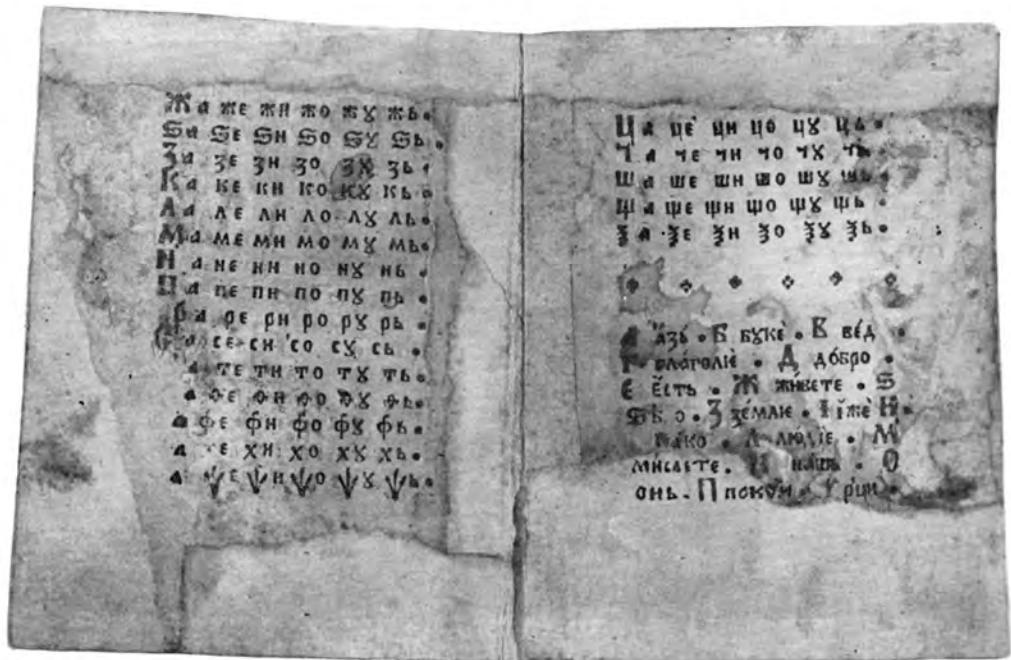 Жа же жи жо жꙋ жь.
Ѕа ѕе ѕи ѕо ѕꙋ ѕь.
За зе зи зо зꙋ зь.
Ка ке ки ко кꙋ кь.
Ла ле ли ло лꙋ ль.
Ма ме ми мо мꙋ мь.
На не ни но нꙋ нь.
Па пе пи по пꙋ пь.
Ра ре ри ро рꙋ рь.
Са се си со сꙋ сь.
а те ти то тꙋ ть.
а ѳе ѳи ѳо ѳꙋ ѳь.
а фе фи фо фꙋ фь.
а е хи хо хꙋ хь.
а ѱе ѱи ѱо ѱꙋ ѱь.
Ца це ци цо цꙋ ць.
Ча че чи чо чꙋ чь.
Ша ше ши шо шꙋ шь.
Ща ще щи що щꙋ щь.
Ѯа ѯе ѯи ѯо ѯꙋ ѯь.
А а҆зь. Б бꙋке. В ве́д
Г глаголіе. Д до́бро.
Є є҆́сть. Ж живѣте. Ѕ
ѕѣ о. З зе́млꙗ. І і҆́же И.
како. Л лю́діе. М
ми́слѣте. Н нашь. О
онь. П поко́и. рци.